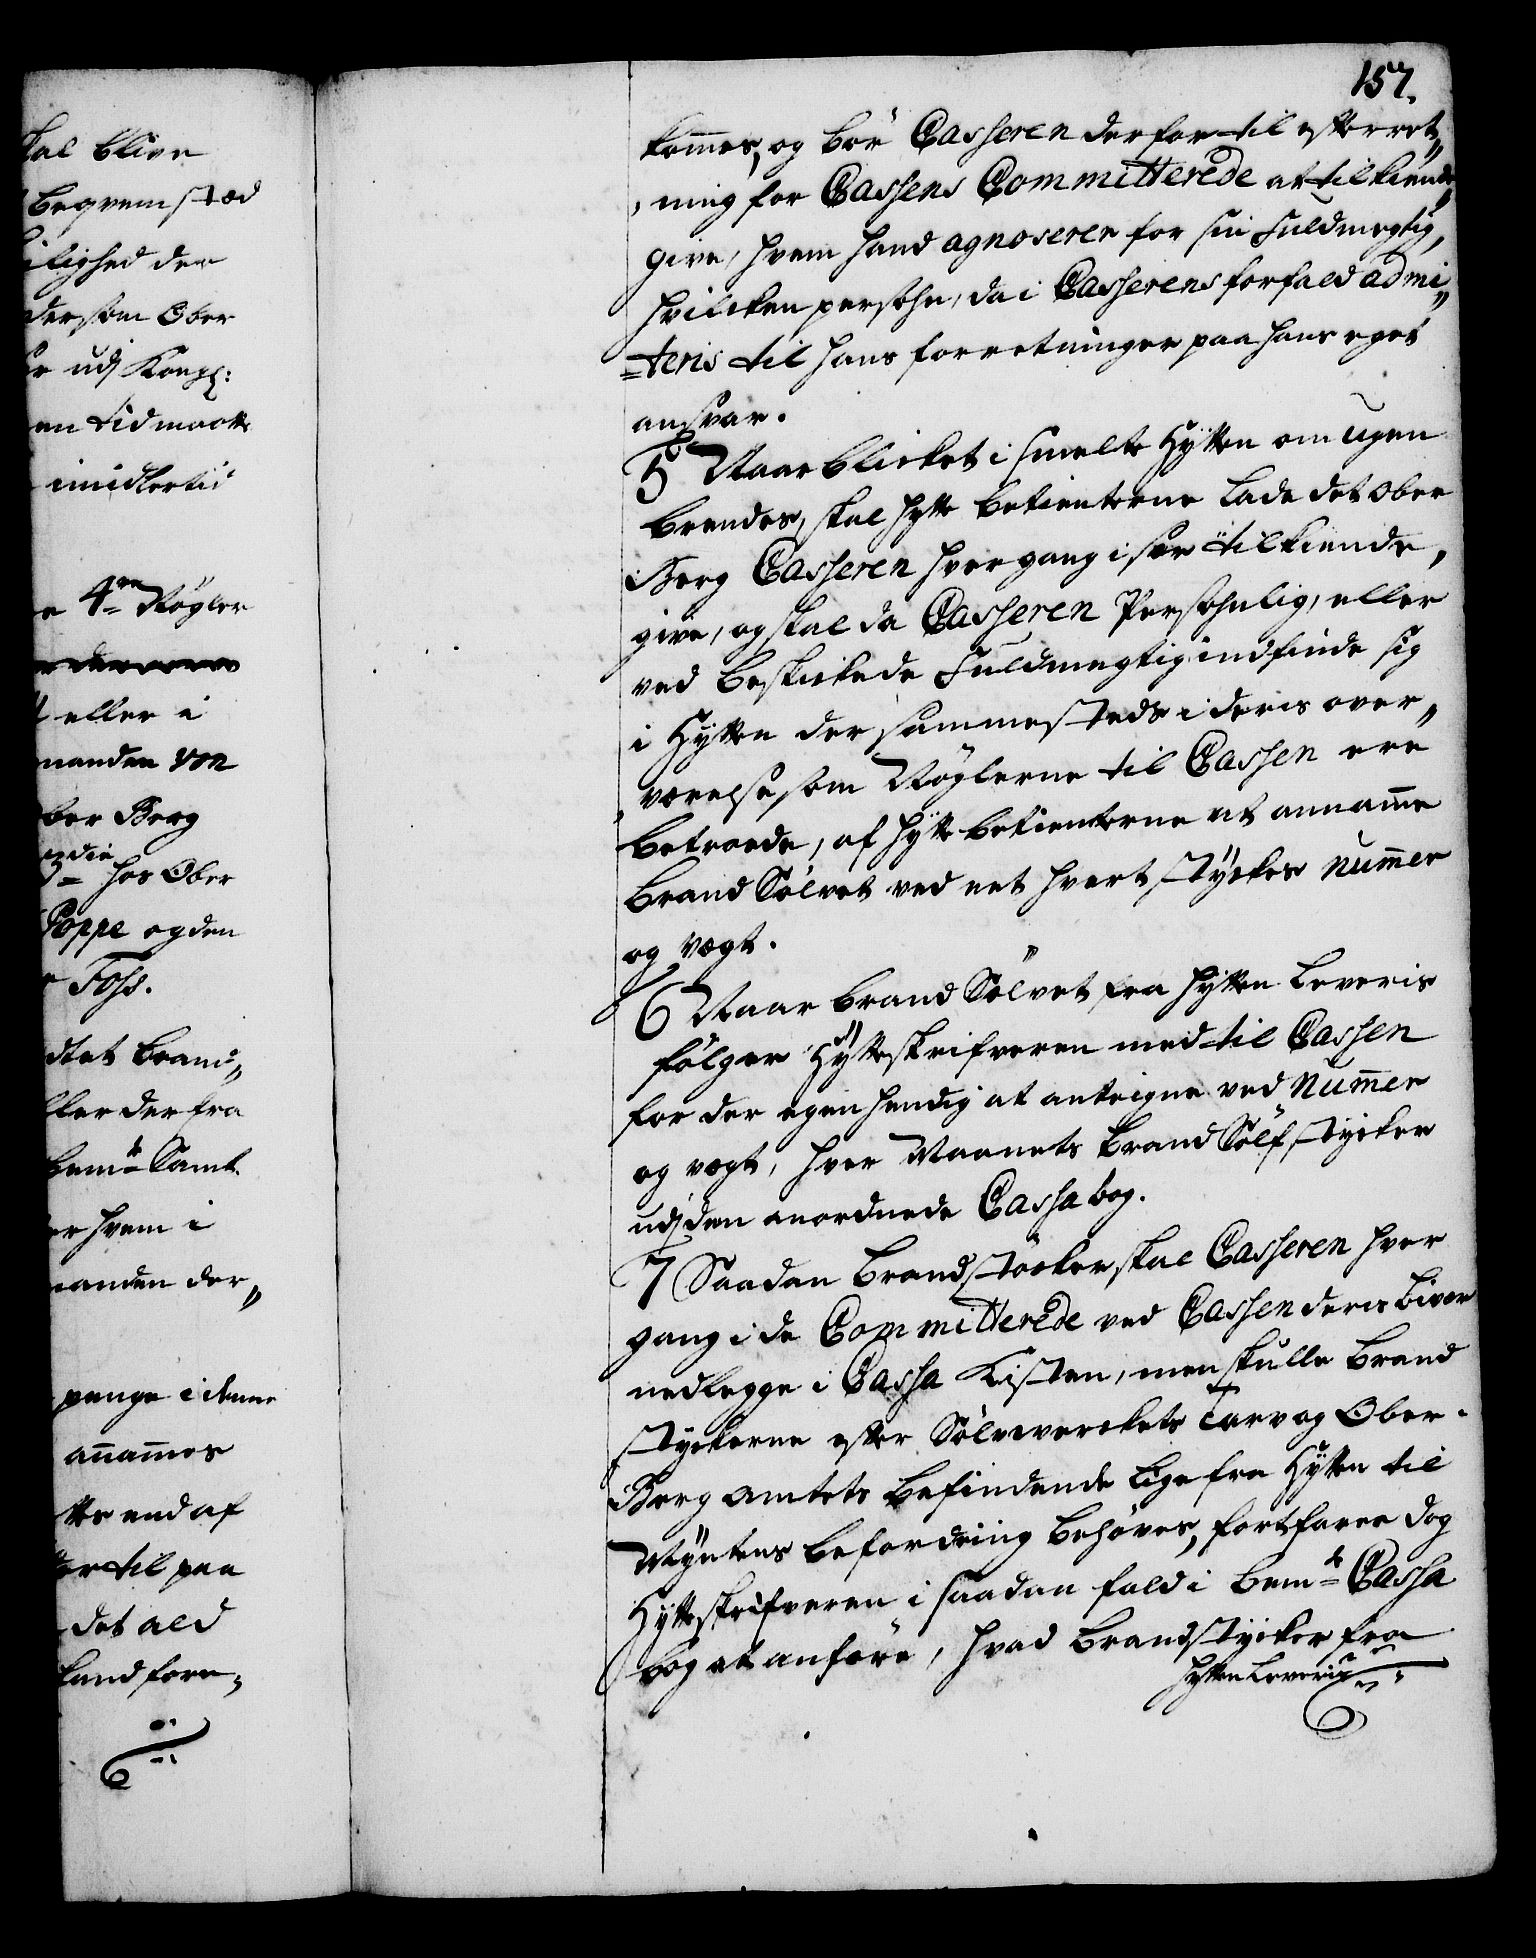 kal blive
begvem stæd
lighed der
dersom Ober
udj Kongl:
en tid maatte
imidlertid
4re Nøgler
eller i
manden von
ber Berg
3die hos Ober
Poppe og den
Foss.
dtet brand„
der fra
bemte Samt
er hvem i
anden der„
penge i denne
anammes
end af
til paa
det ald
land fore„
157.
kommes, og bør Casseren derfor til efterret„
„ning for Cassens Committerede at tilkiende„
give, hvem hand agnoserer for sin Fuldmegtig,
hvilcken persohn, da i Casserens forfald admi„
=teris til hans forretninger paa hans eget
ansvar.
5 Naar blicket i smelte Hytten om ugen
brendes, skal hytte betienterne lade det Ober
Berg Casseren hver gang i sær tilkiende,
give, og skal da Casseren Persohnlig, eller
ved beskickede Fuldmegtig indfinde sig
i Hytten der sammesteds i deris over„
værelse, som Nøglerne til Cassen ere
betroede, af hytte betienterne at annamme
brand Sølvet ved et hvert stÿckes Nummer
og vegt.
6 Naar brand Sølvet fra hytten leveris
følger Hytteskrifveren med til Cassen
for der egenhendig at anteigne ved Nummer
og vegt, hver Maanets brand Sølf stÿcker
udj den anordnede Cassa bog.
7 Saadan brandstøcker skal Casseren hver
gang i de Committerede ved Cassen deris biver
nedlegge i Cassa Kisten, men skulle brand
styckerne efter Sølvverckets Tarv og Ober-
Berg Amtets befindende lige fra Hytten til
Myntens befordring behøves, fortfarer dog
Hytteskrifveren i saadan fald i bemte Cassa
bog at anføre, hvad brandstÿcker fra
hytten leveris